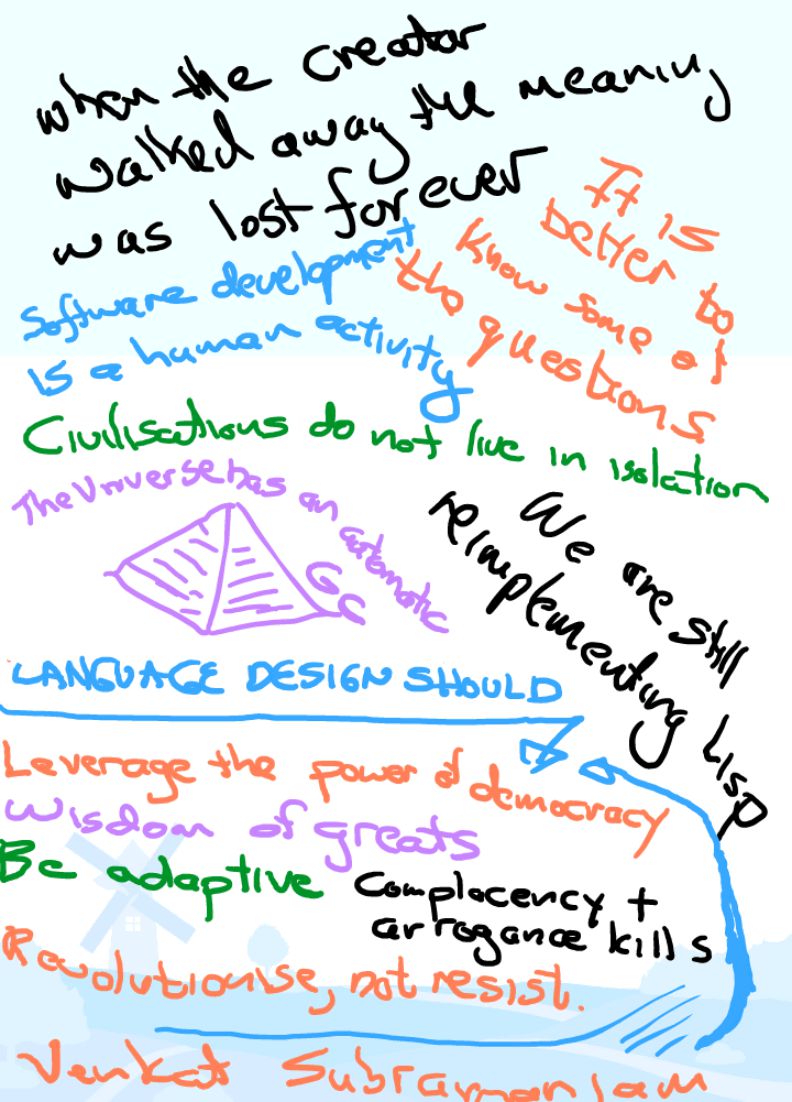 when the creator
walked away the meaning
was lost forever
It is
better to
know some of
the questions
Software development
is a human activity
Civilisations do not live in isolation
The Universe has an automatic
GC
We are still
reimplementing Lisp
LANGUAGE DESIGN SHOULD
Leverage the power of democracy
Wisdom of greats
Be adaptive
Complacency +
arrogance kills
Revolutionise, not resist.
Venkat Subramaniam